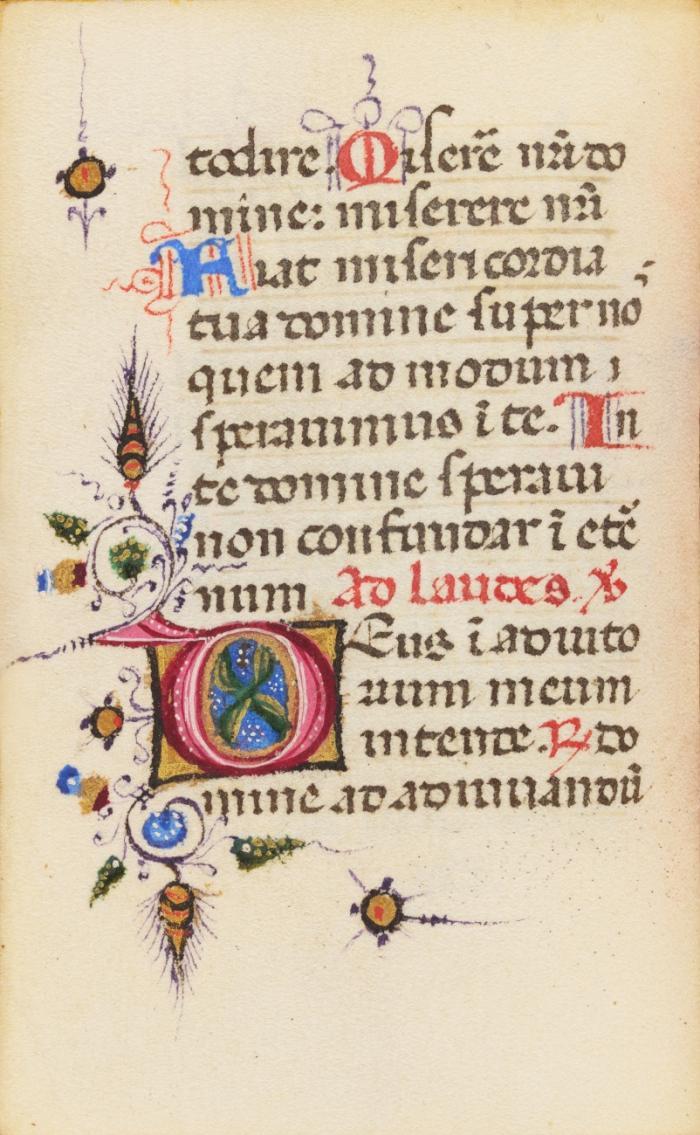 todire. Miserē nr̄i do
mine: miserere nr̄i
Fiat misericordia
tua domine super nō
quem ad modum
sperauimus ī te. In
te domine speraui
non confundar ī etē
num Ad laudes. V̄
Deus ī adiuto
rium meum
intende. R̄ do
mine ad adiuuandū